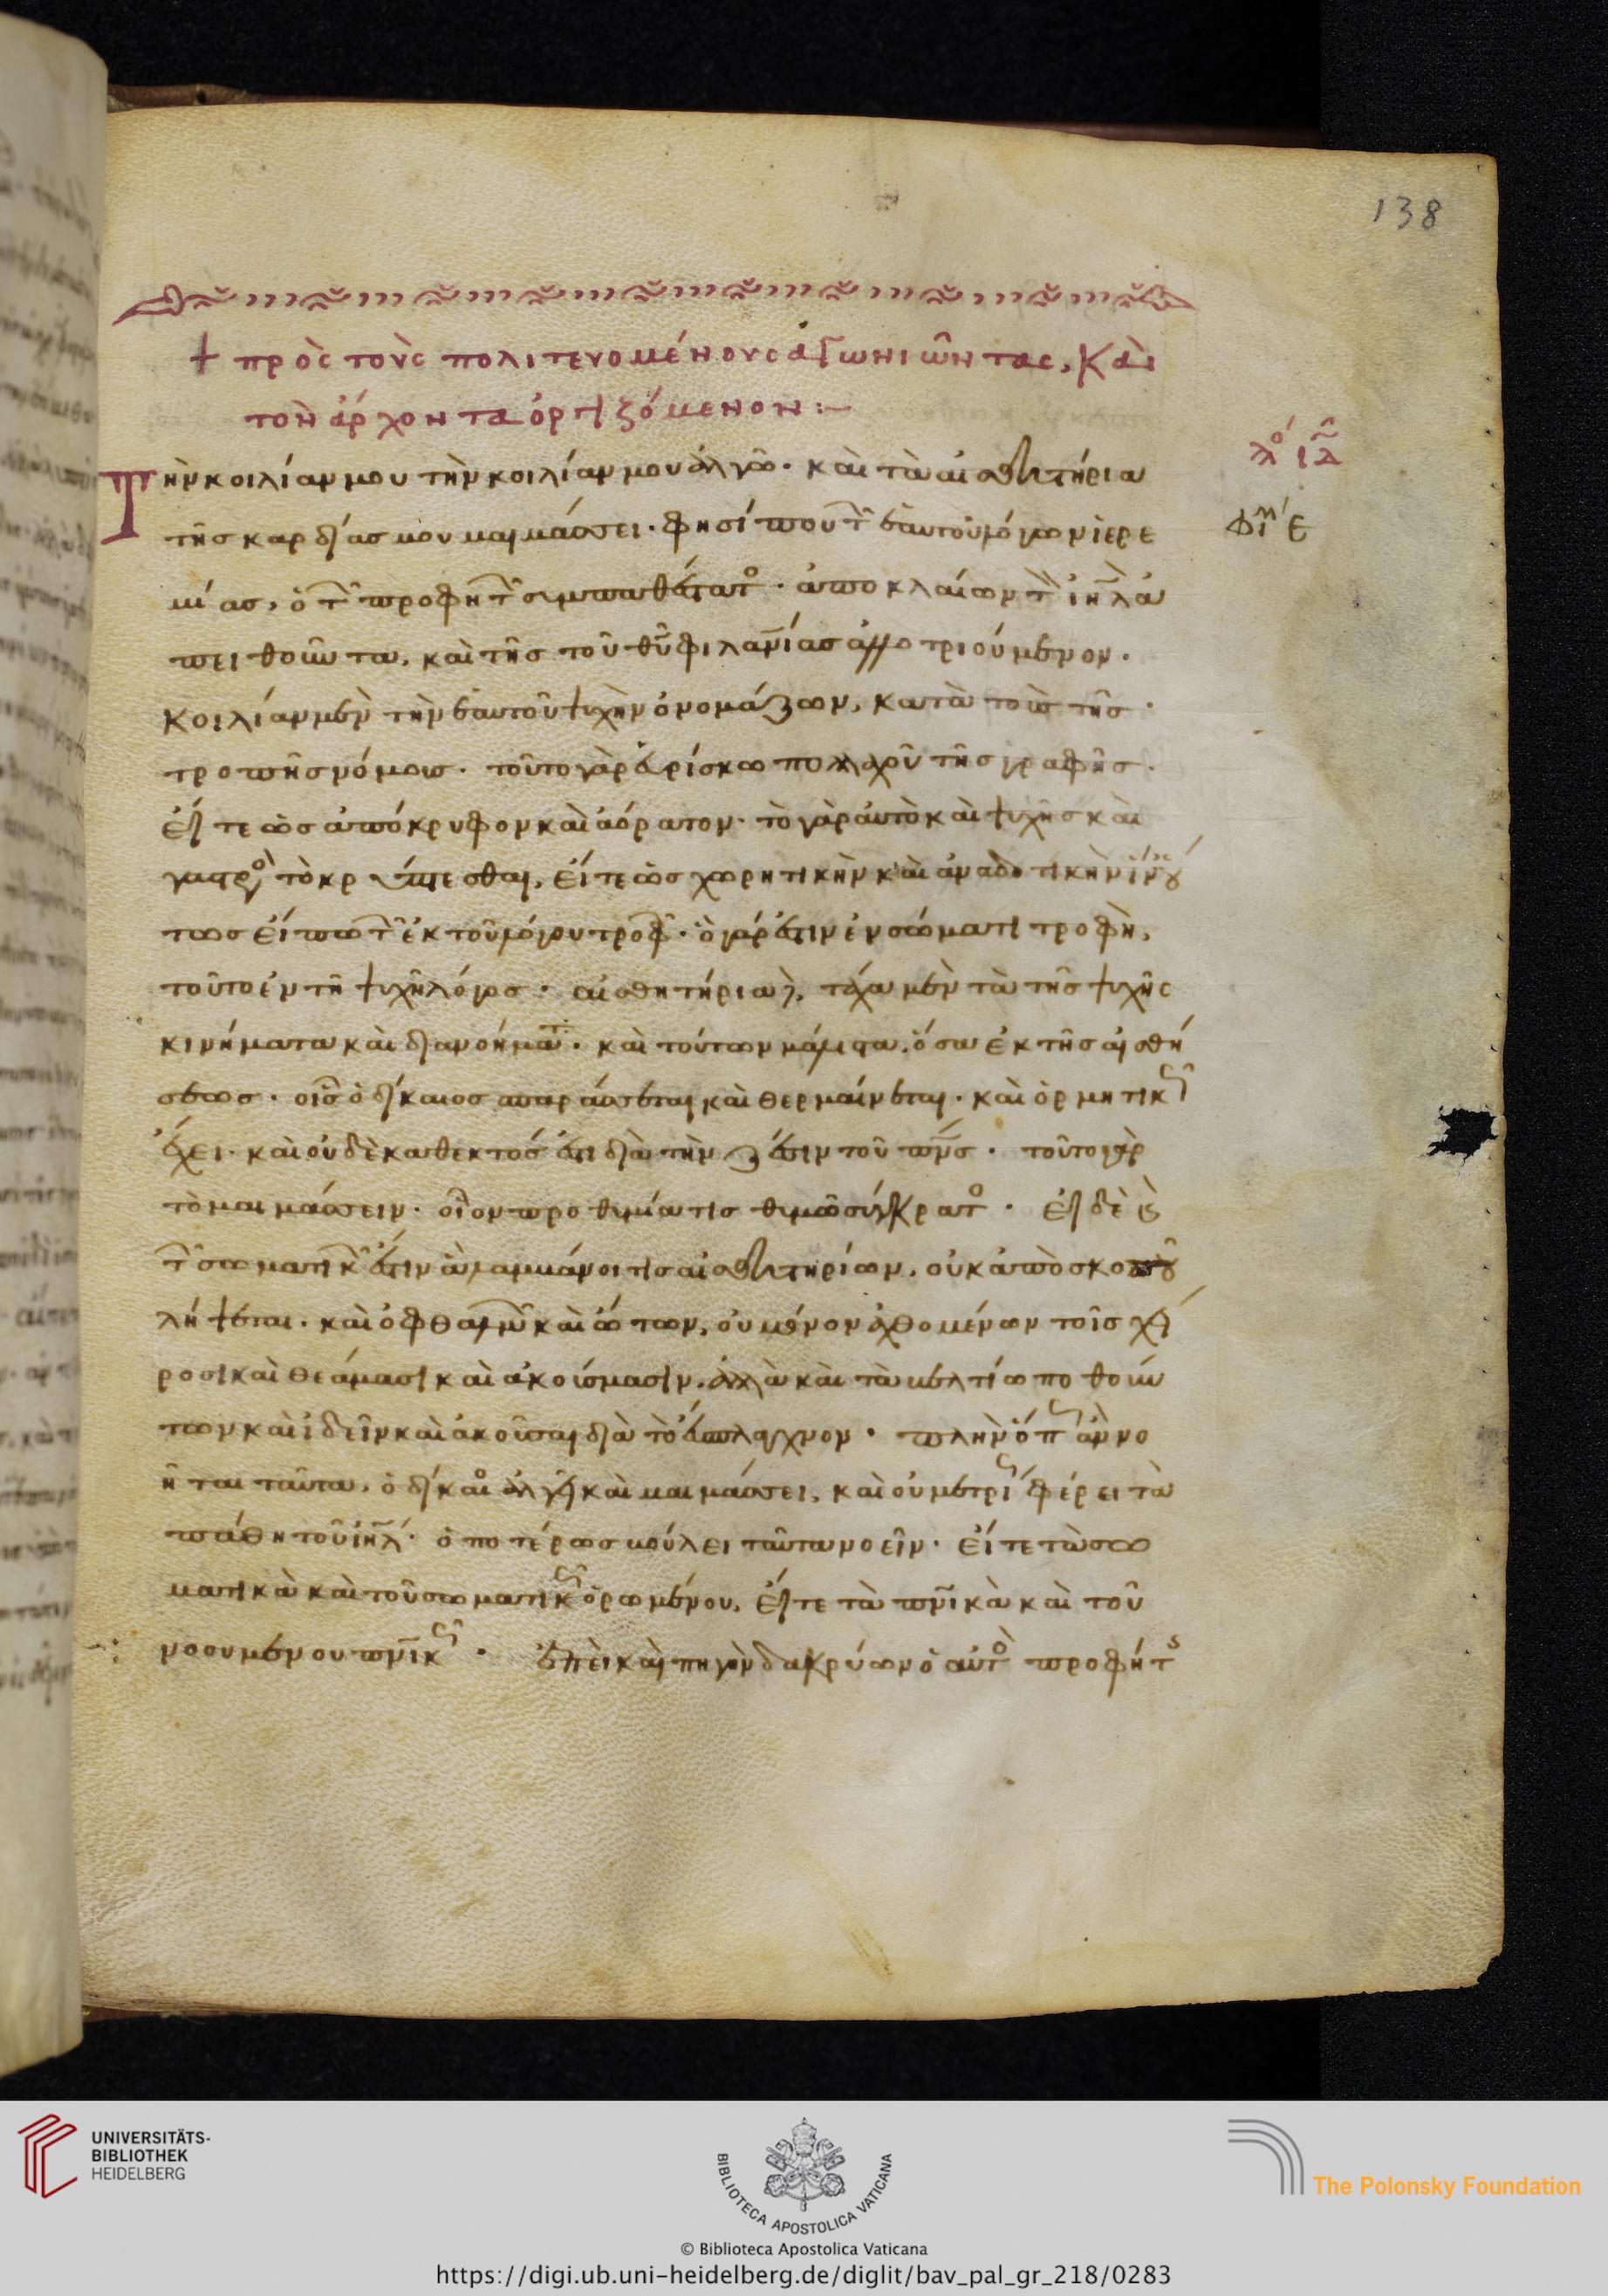 138
+ πρὸς τοὺς πολιτευομένους ἀγωνιῶντας, καὶ
τὸν ἄρχοντα ὀργιζόμενον:-
λό ιδ
Τὴν κοιλίαν μου τὴν κοιλίαν μου ἀλγῶ· καὶ τὰ αἰσθητήρια
τῆς καρδίας μου μαιμάσσει· φησί που τῶν ἑαυτοῦ λόγων ἱερε
μίας, ὁ τῶν προφητῶν συμπαθέστατος· ἀποκλαίων τὸν ἰηλ ἀ
πειθοῦντα, καὶ τῆς τοῦ θυ φιλανίας ἀλλοτριούμενον·
κοιλίαν μὲν τὴν ἑαυτοῦ ψυχὴν ὀνομάζων, κατὰ τοὺς τῆς
τροπῆς νόμους· τοῦτο γὰρ εὑρίσκω πολλαχοῦ τῆς γραφῆς·
εἴτε ὡς ἀπόκρυφον καὶ ἀόρατον· τὸ γὰρ αὐτὸ καὶ ψυχῆς καὶ
γαστρὸς τὸ κρύπτεσθαι, εἴτε ὡς χωρητικὴν καὶ ἀναδοτικὴν ἵν οὕ
τως εἴπω τῶν ἐκ τοῦ λόγου τροφῶν· ὃ γάρ ἐστιν ἐν σώματι τροφὴ,
τοῦτο ἐν τῆ ψυχῆ λόγος· αἰσθητήρια δὲ, τάχα μὲν τὰ τῆς ψυχῆς
κινήματα καὶ διανοήματα· καὶ τούτων μάλιστα, ὅσα ἐκ τῆς αἰσθή
σεως· οἷς ὁ δίκαιος σπαράσσεται καὶ θερμαίνεται· καὶ ὁρμητικῶς
ἔχει· καὶ οὐδὲ καθεκτός ἐστι διὰ τὴν ζέσιν τοῦ πνς· τοῦτο γὰρ
τὸ μαιμάσσειν· οἷον προθυμία τις θυμῶ σύγκρατος· εἰ δὲ καὶ
τῶν σωματικῶν ἔστιν ἃ λαμβάνοι τις αἰσθητηρίων, οὐκ ἀπὸ σκοποῦ
λήψεται· καὶ ὀφθαλμῶν καὶ ὤτων, οὐ μόνον ἀχθομένων τοῖς χεί
ροσι καὶ θεάμασι καὶ ἀκούσμασιν, ἀλλὰ καὶ τὰ βελτίω ποθούν
των καὶ ἰδεῖν καὶ ἀκοῦσαι διὰ τὸ εὔσπλαγχνον· πλὴν ὅπως ἂν νο
ῆται ταῦτα, ὁ δίκαιος ἀλγεῖ καὶ μαιμάσσει, καὶ οὐ μετρίως φέρει τὰ
πάθη τοῦ ἰηλ· ὁποτέρως βούλει ταῦτα νοεῖν· εἴτε τὰ σω
ματικὰ καὶ τοῦ σωματικῶς ὁρωμένου, εἴτε τὰ πνικὰ καὶ τοῦ
νοουμένου πνικῶς· ἐπεὶ καὶ πηγὴν δακρύων ὁ αὐτὸς προφήτης
UNIVERSITÄTS-
BIBLIOTHEK
HEIDELBERG
BIBLIOTECA APOSTOLICA VATICANA
The Polonsky Foundation
© Biblioteca Apostolica Vaticana
https://digi.ub.uni-heidelberg.de/diglit/bav_pal_gr_218/0283